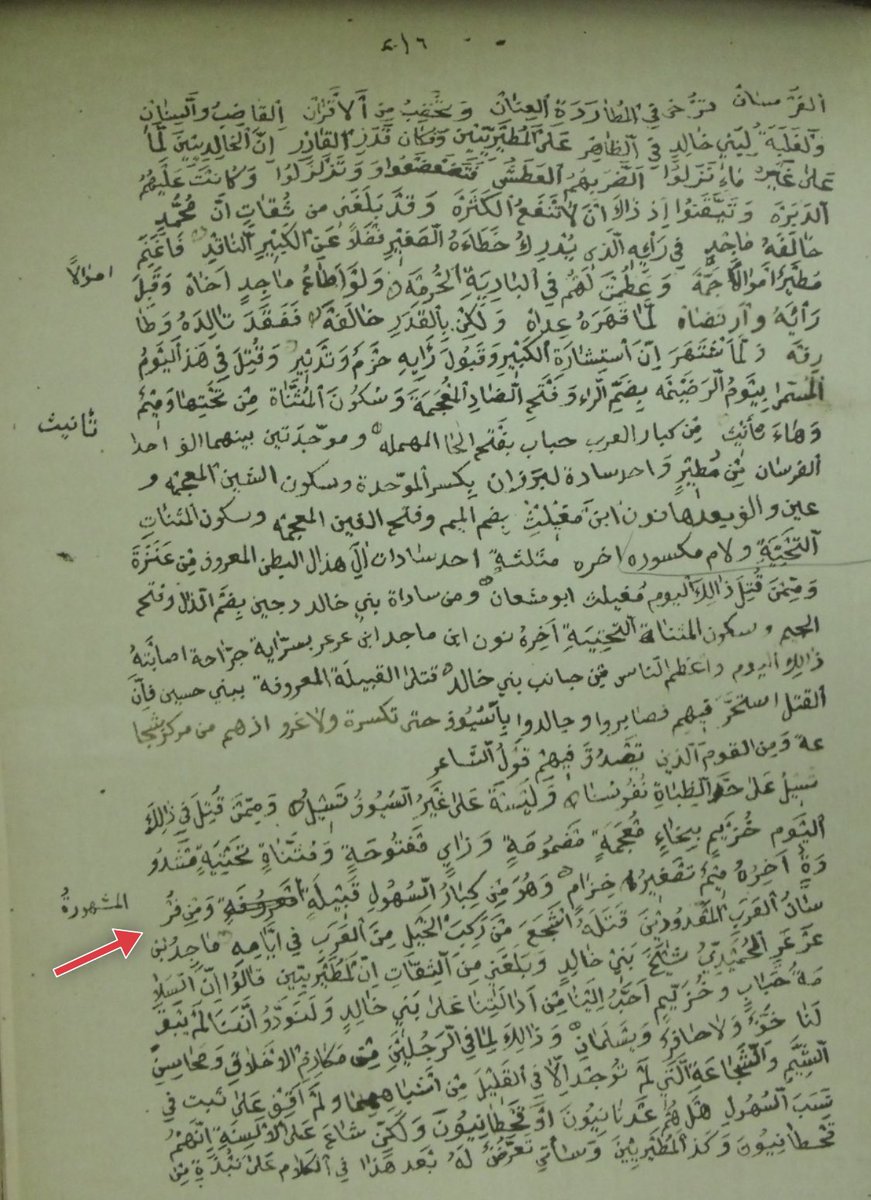 ٢١٦
الفرسان تزخى في المطاردة العنان وتخضب من الأقران القاضب والسنان
والغلبة لبني خالد في الظاهر على المطيريين وكان قدر القادر ان الخالديين لما
على غير ماء نزلوا اضر بهم العطش فتضعضعوا وتزلزلوا وكانت عليهم
الدبرة وتيقنوا اذ ذاك ان لا تنفع الكثرة وقد بلغني من ثقات ان محمد
خالفه ماجد في رأيه الذي يدرك خطاءه الصغير فضلا عن الكبير الناقد فاغتم
اموالاً
مطير اموالا جمة وعظمت لهم في البادية الحرمة ولو اطاع ماجد اخاه وقبل
رأيه وارتضاه لما قهره عداه ولكن بالقدر خالفه ففقد تالده وطا
رفه ولما اشتهر ان استشارة الكبير وقبول رأيه حزم وتدبير وقتل في هذا اليوم
المسمى بيوم الرضيمه بضم الراء وفتح الضاد المعجمة وسكون المثناة من تحتها وميم
تأنيث
وهاء تأنيث من كبار العرب حباب بفتح الحا المهمله وموحدتين بينهما الف احد
الفرسان من مطير واحد سادة لبرزان بكسر الموحدة وسكون الشين المعجمه و
عين والف وبعدها نون ابن مغيليث بضم الميم وفتح الغين المعجمه وسكون المثنات
التحتية ولام مكسوره اخره مثلثة احد سادات آل هذال البطن المعروف من عنزة
وممن قتل ذالك اليوم مغيلث ابو مشعان ومن سادة بني خالد دجين بضم الدال وفتح
الجيم وسكون المثناة التحتية آخره نون ابن ماجد ابن عرعر بسراية جراحة اصابته
ذالك اليوم واعظم الناس من جانب بني خالد قتلا القبيلة المعروفة ببني حسين فان
القتل استحر فيهم فصابروا وجالدوا بالسيوف حتى تكسرة ولا غرو اذهم من مركز شجا
عة ومن القوم الذين تصدق فيهم قول الشاعر
تسيل على حد الظباة نفوسنا وليسة على غير السيوف تسيل وممن قتل في ذالك
اليوم خزيم بخاء معجمة مضمومة وزاي مفتوحة ومثناة تحتية مشدو
دة آخره ميم تصغير خزام وهو من كبار السهول قبيلة معروفة ومن فر
المشهورة
سان العرب المعدودين قتله اشجع من ركب الخيل من العرب في ايامه ماجد بن
عرعر الحميدي شايخ بني خالد وبلغني من الثقات ان المطيريين قالوا ان السلا
مة حباب وخزيم احب الينا من اذالتنا على بني خالد ولنودو اننا لم يبق
لنا خف ولا حافر ويسلمان وذالك لما في الرجلين من مكارم الاخلاق ومحاسن
الشيم والشجاعة التي لم توجد الا في القليل من اشباههما ولم اقف على ثبت في
نسب السهول هل هم عدنانيون او قحطانيون ولكن شاع على الالسنة انهم
قحطانيون وكذا المطيريين وسأتي تعرض له بعد هذا في الكلام على نبذة من